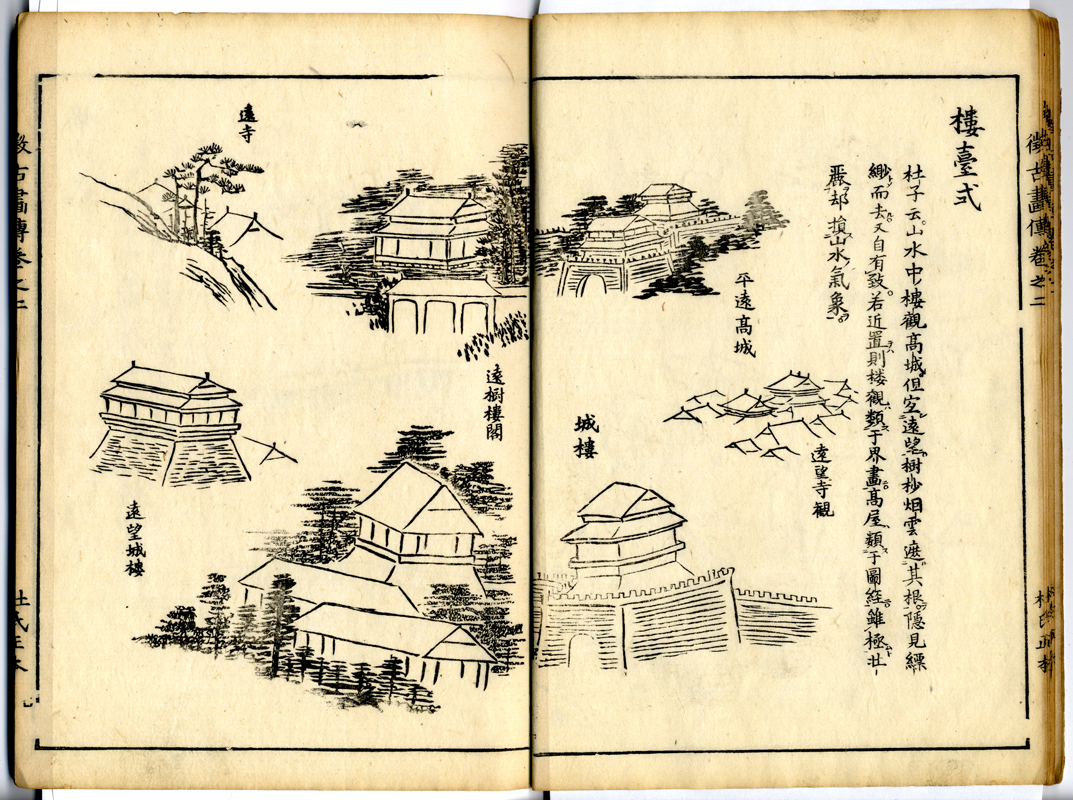 徴古畫傳卷之二
樓臺式
杜子云。山水中樓觀高城但宜遠望樹杪烟雲遮其根隱見縹
緲而去。又自有致。若近置則楼觀類于界畫。高屋類于圖経。雖極壮
麗却損山水氣象。
平遠高城
遠望寺観
城樓
遠樹樓閣
遠寺
遠望城樓
古畫傳卷之二